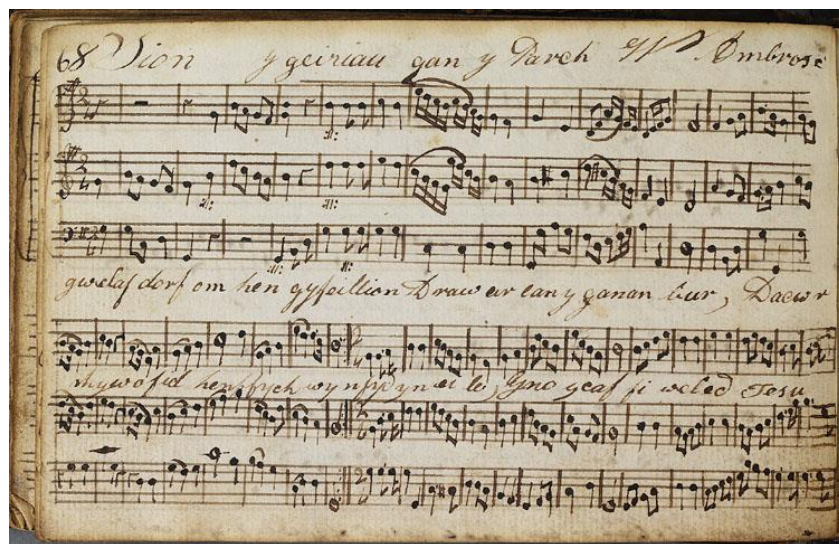 68 Sion y geiriau gan y Parch Wm Ambrose
:S: :S:
:S: :S:
:S: :S:
gwelaf dorf om hen gyfeillion Draw ar lan y ganan bur, Daewr
rhyw ofid hen fych wy ei le, Yno y caf fi weled Iesu